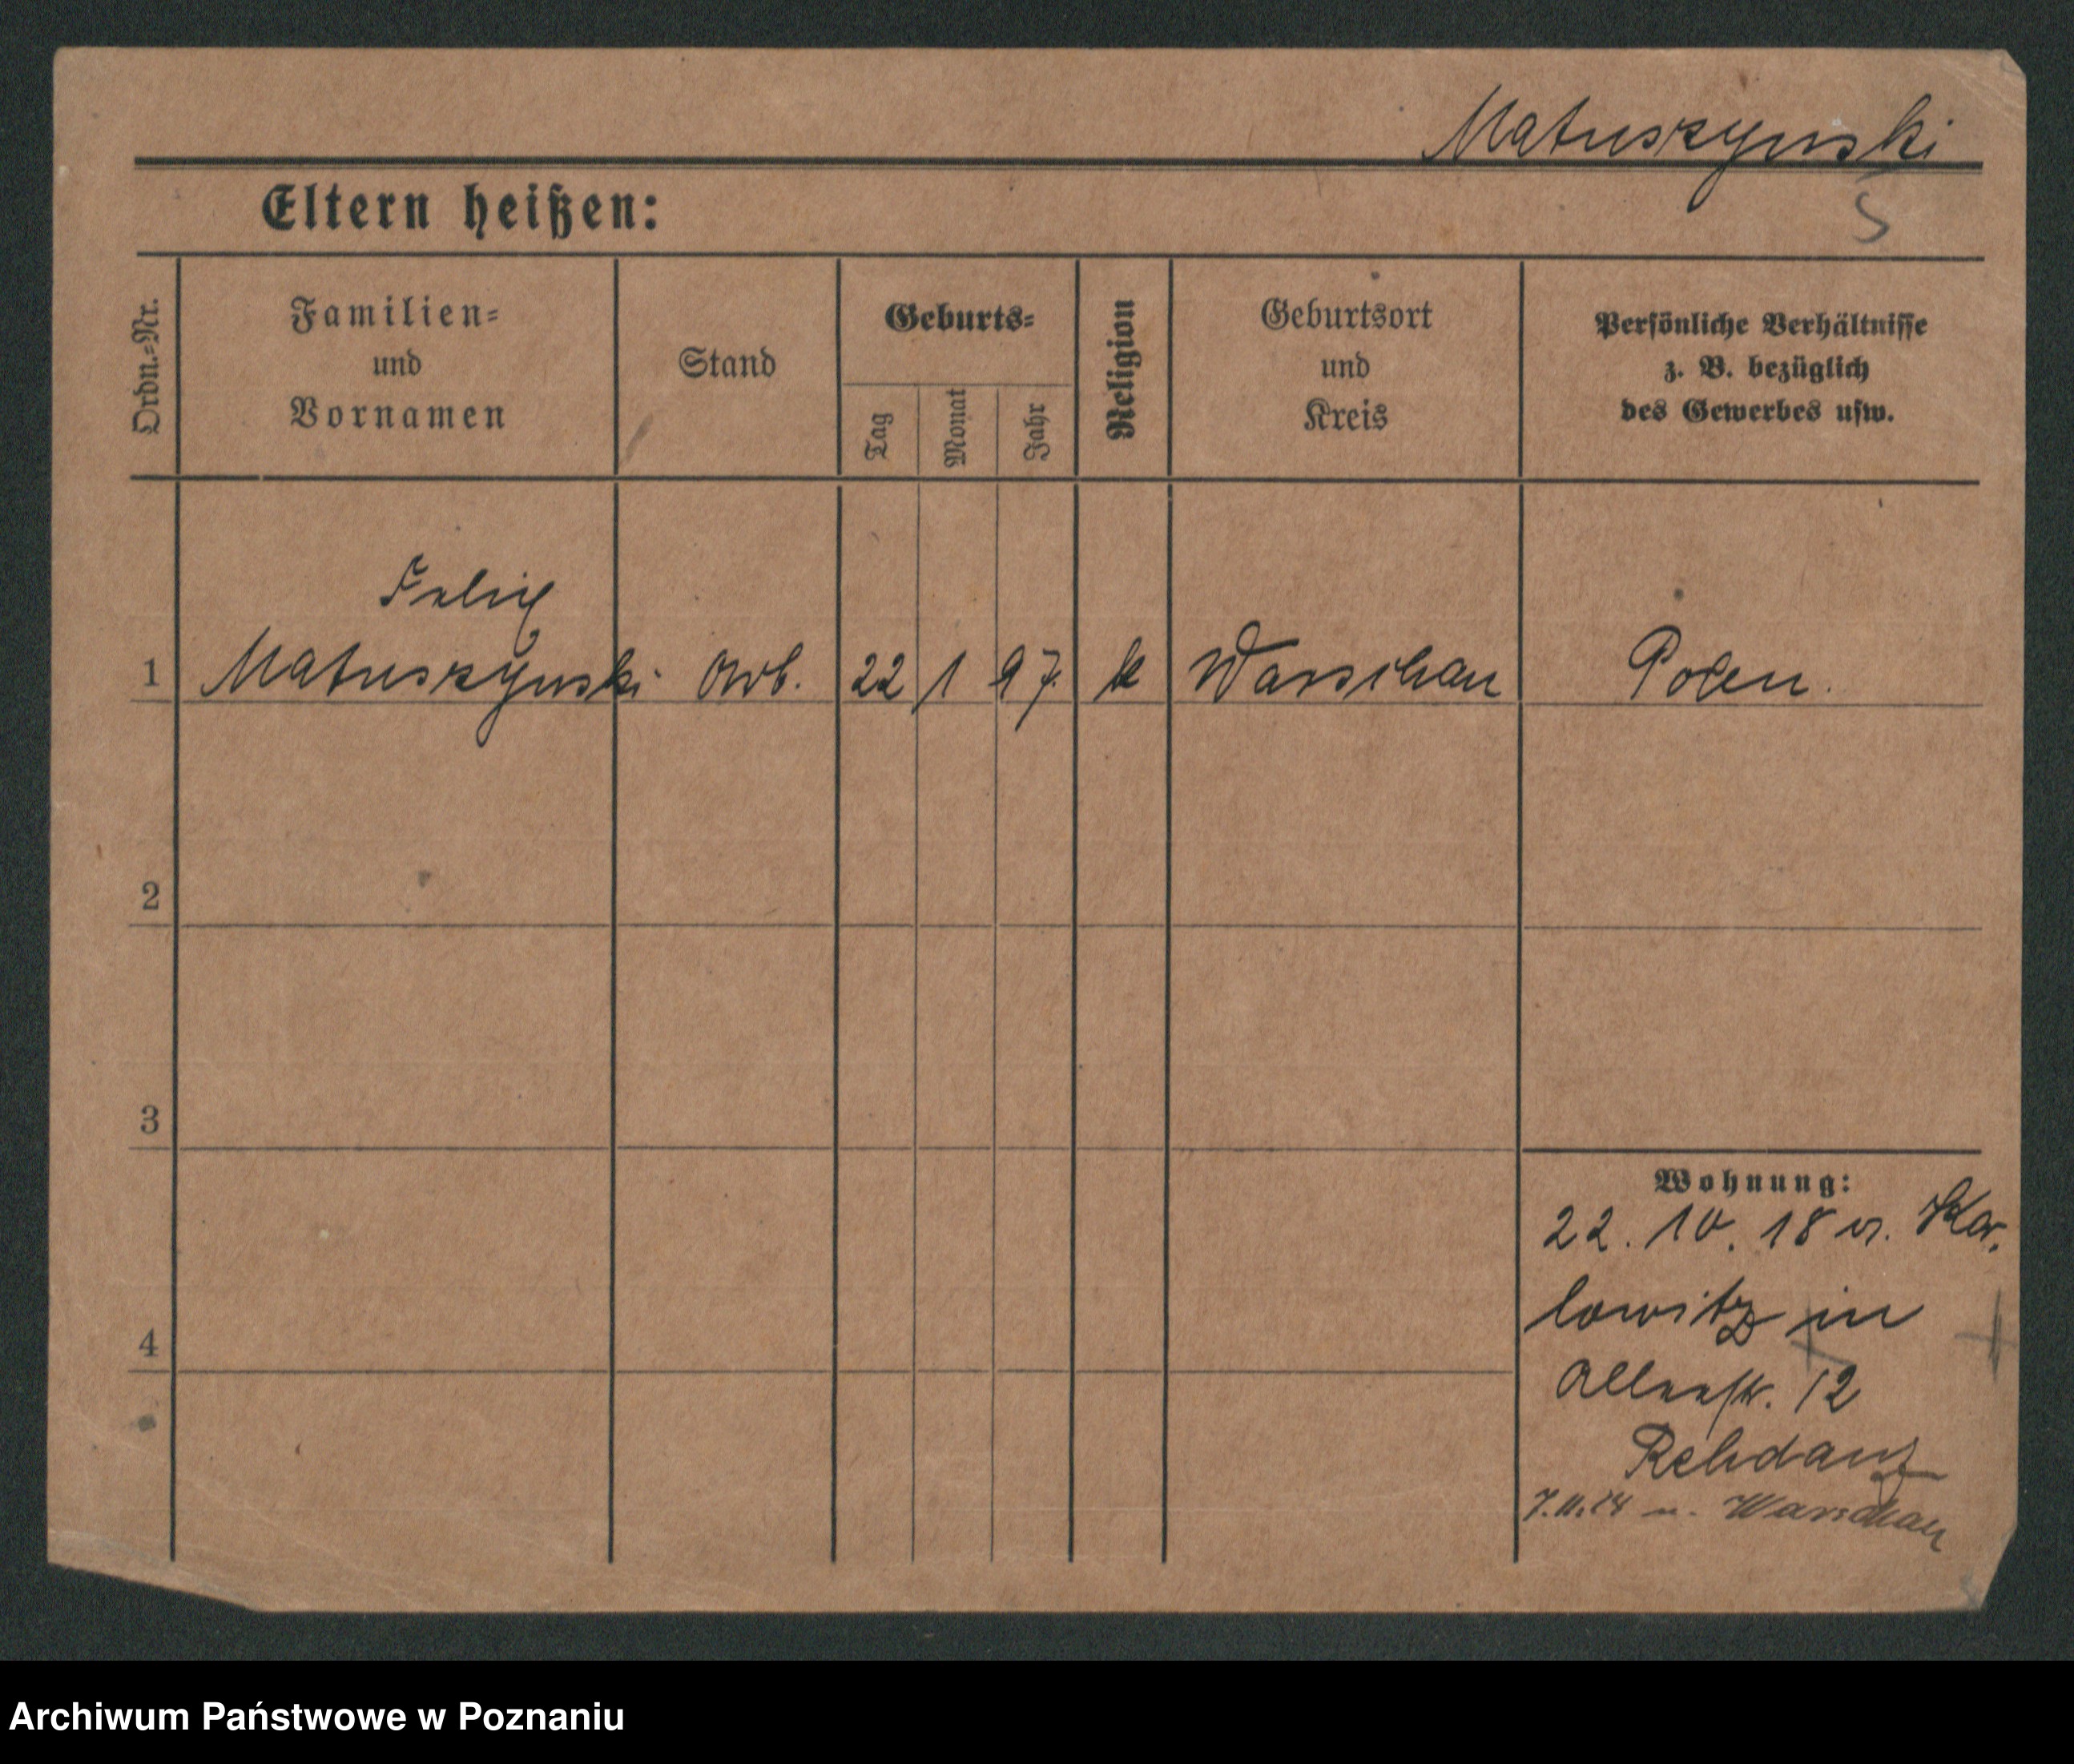 Matuszynski
Eltern heißen:
Ordn.=Nr.
Familien=
und
Vornamen
Stand
Geburts=
Tag
Monat
Jahr
Religion
Geburtsort
und
Kreis
Persönliche Verhältnisse
z. B. bezüglich
des Gewerbes usw.
Felix
1 Matuszynski Arb. 22 1 97. k Warschau Polen.
2
3
4
Wohnung:
22. 10. 18 v. Kar.
lowitz in
Allee str. 12
Rehdanz
7.11. n. Warschau
Archiwum Państwowe w Poznaniu